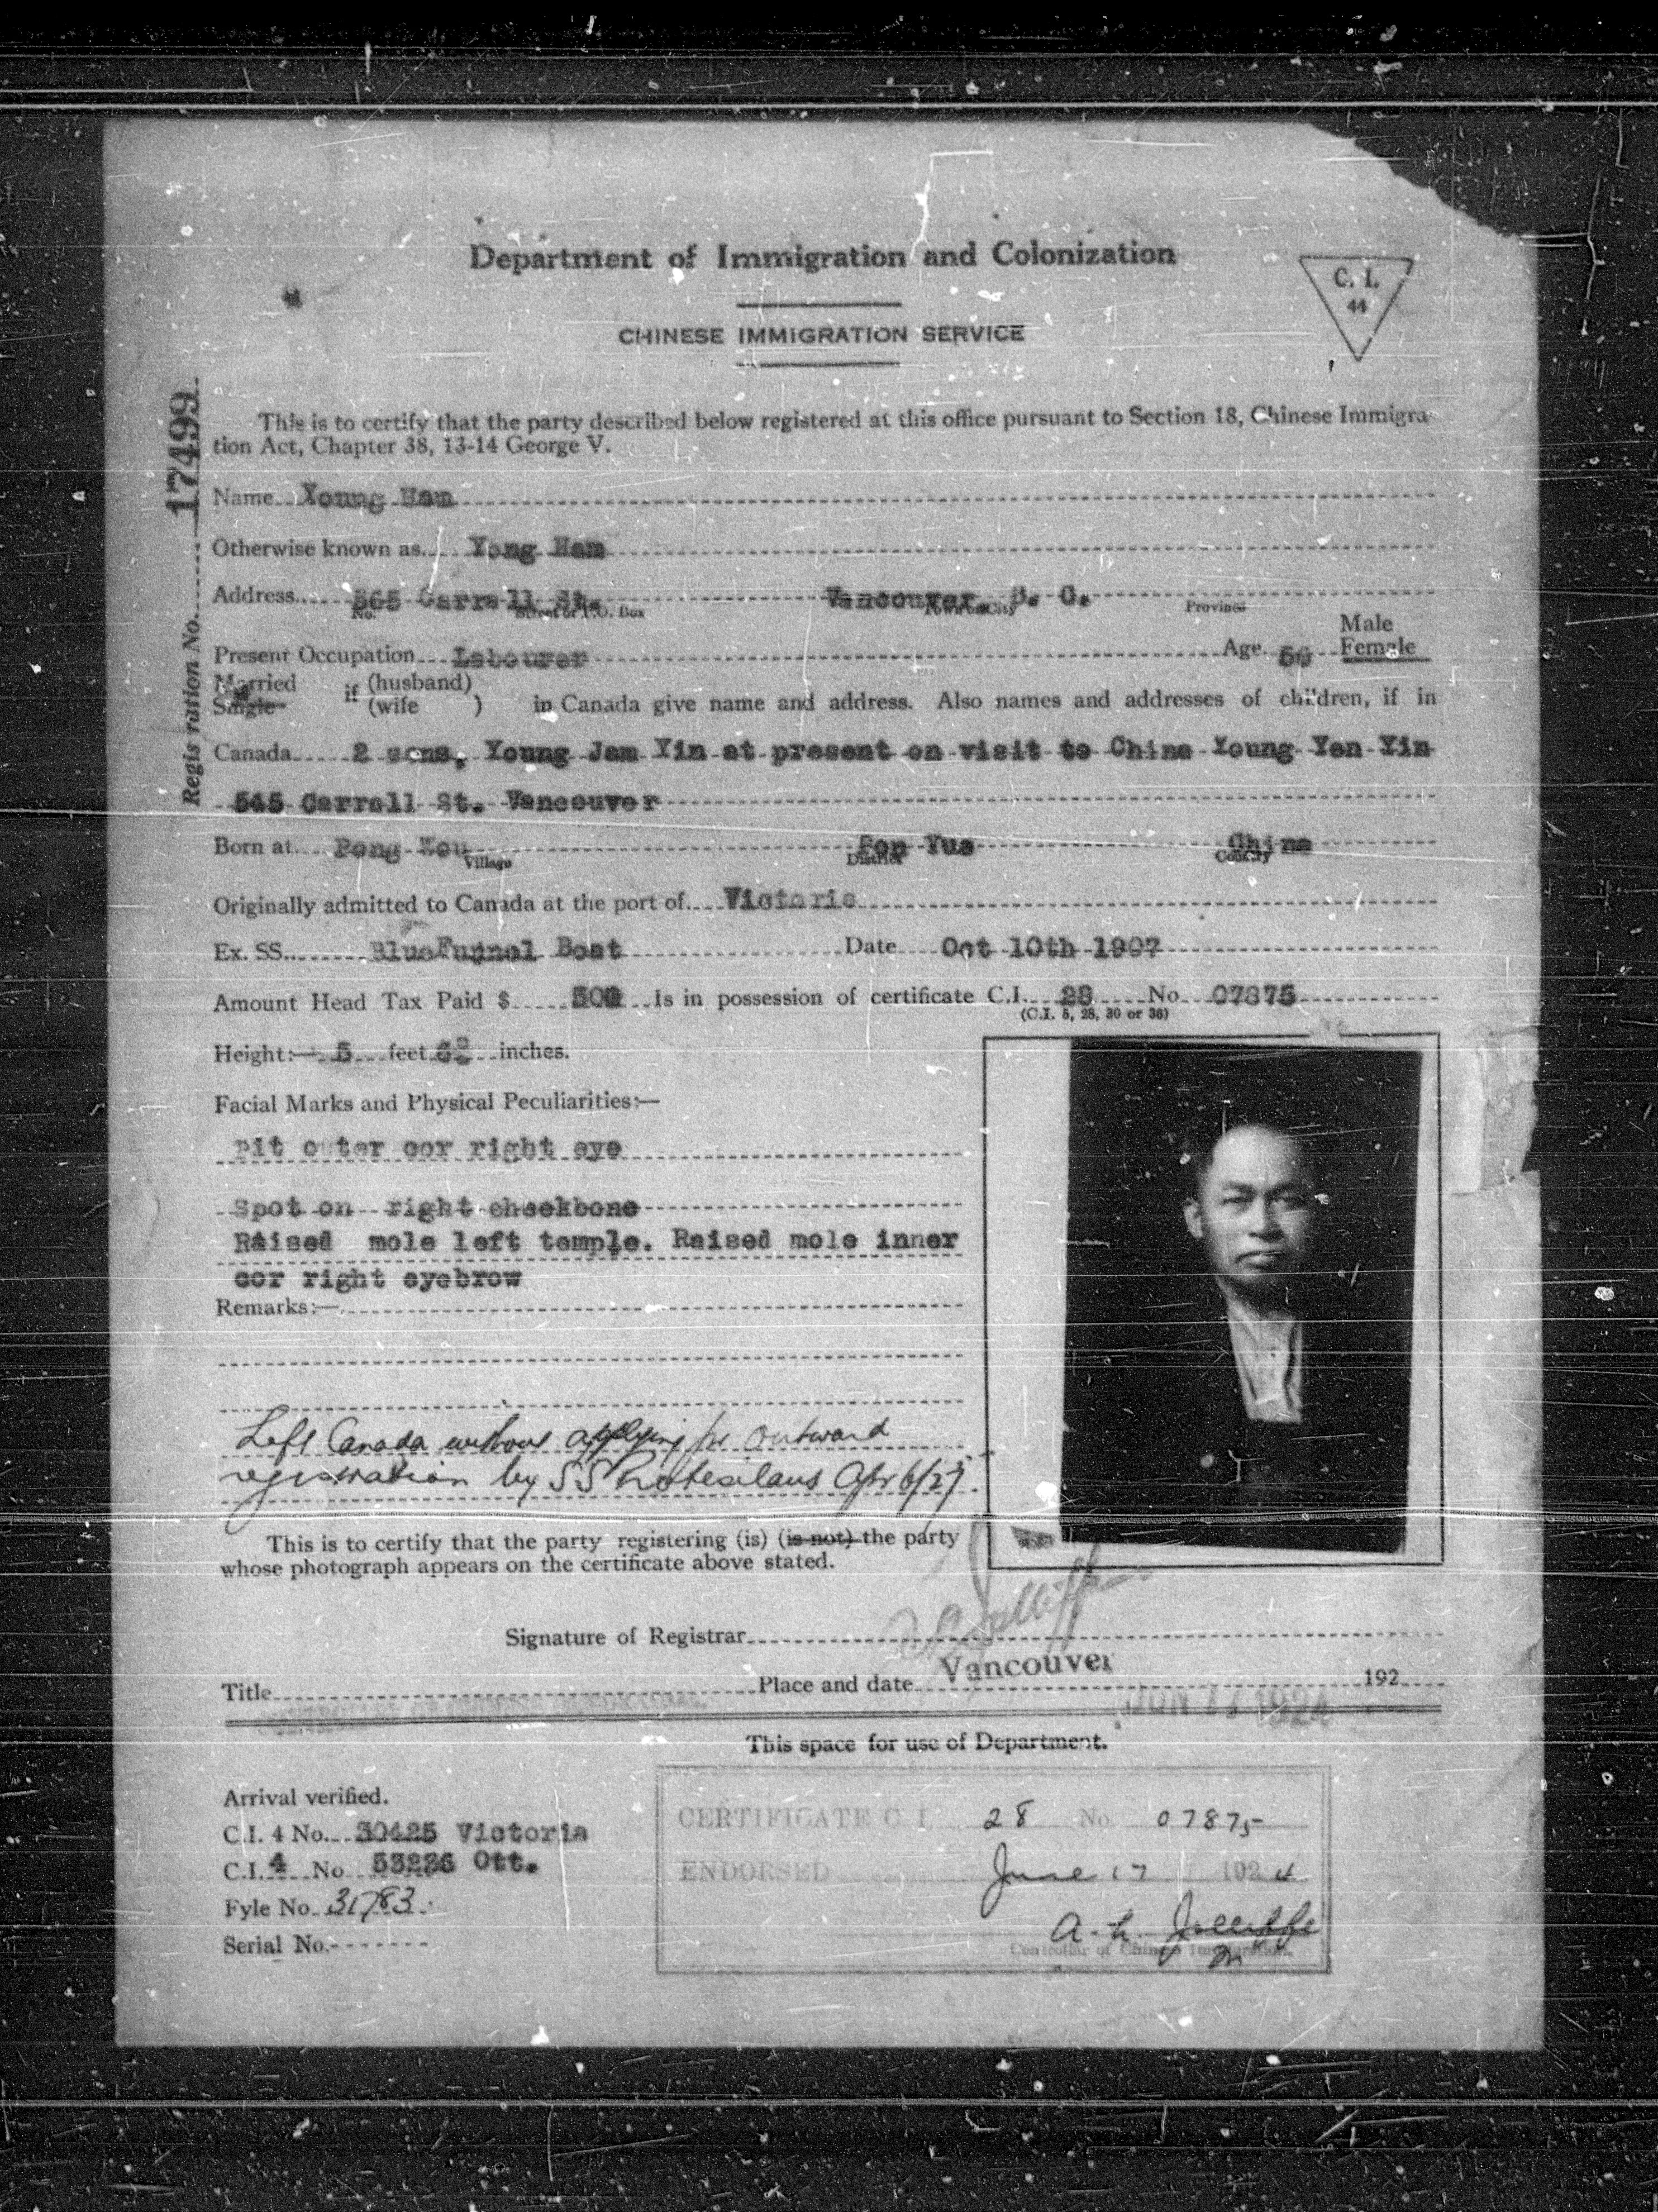 Department of Immigration and Colonization
C. I.
44
CHINESE IMMIGRATION SERVICE
Regis ration No. 17499
This is to certify that the party described below registered at this office pursuant to Section 18, Chinese Immigra-
tion Act, Chapter 38, 13-14 George V.
Name Young Ham
Otherwise known as Yong Ham
Address 565 Carrall St. Vancouver B. C.
No. Street or P.O. Box Town or City Province
Male
Present Occupation Labourer Age 56 Female
Married (husband)
Single if (wife ) in Canada give name and address. Also names and addresses of children, if in
Canada 2 sons, Young Jam Yin at present on visit to China Young Yen Yin
545 Carrall St. Vancouver
Born at Pong Village Pon Yue District China County
Originally admitted to Canada at the port of Victoria
Ex. SS. BlueFunnel Boat Date Oct 10th 1907
Amount Head Tax Paid $ 500 Is in possession of certificate C.I. 28 No 07875
(C.I. 5, 28, 30 or 36)
Height:— 5 feet inches.
Facial Marks and Physical Peculiarities:—
Pit outer cor right eye
Spot on right cheekbone
Raised mole left temple. Raised mole inner
cor right eyebrow
Remarks:—
Left Canada without applying for outward
registration by SS Protesilaus Apr 6/25
This is to certify that the party registering (is) (is not) the party
whose photograph appears on the certificate above stated.
Signature of Registrar Jolliffe
Title Place and date Vancouver 192
JUN 17 1924
This space for use of Department.
Arrival verified.
C.I. 4 No. 30425 Victoria
C.I. 4 No 53236 Ott.
Fyle No. 31783
Serial No.
CERTIFICATE C. I. 28 No. 07875
ENDORSED June 17 1924
A. L. Jolliffe
Controller of Chinese Immigration.